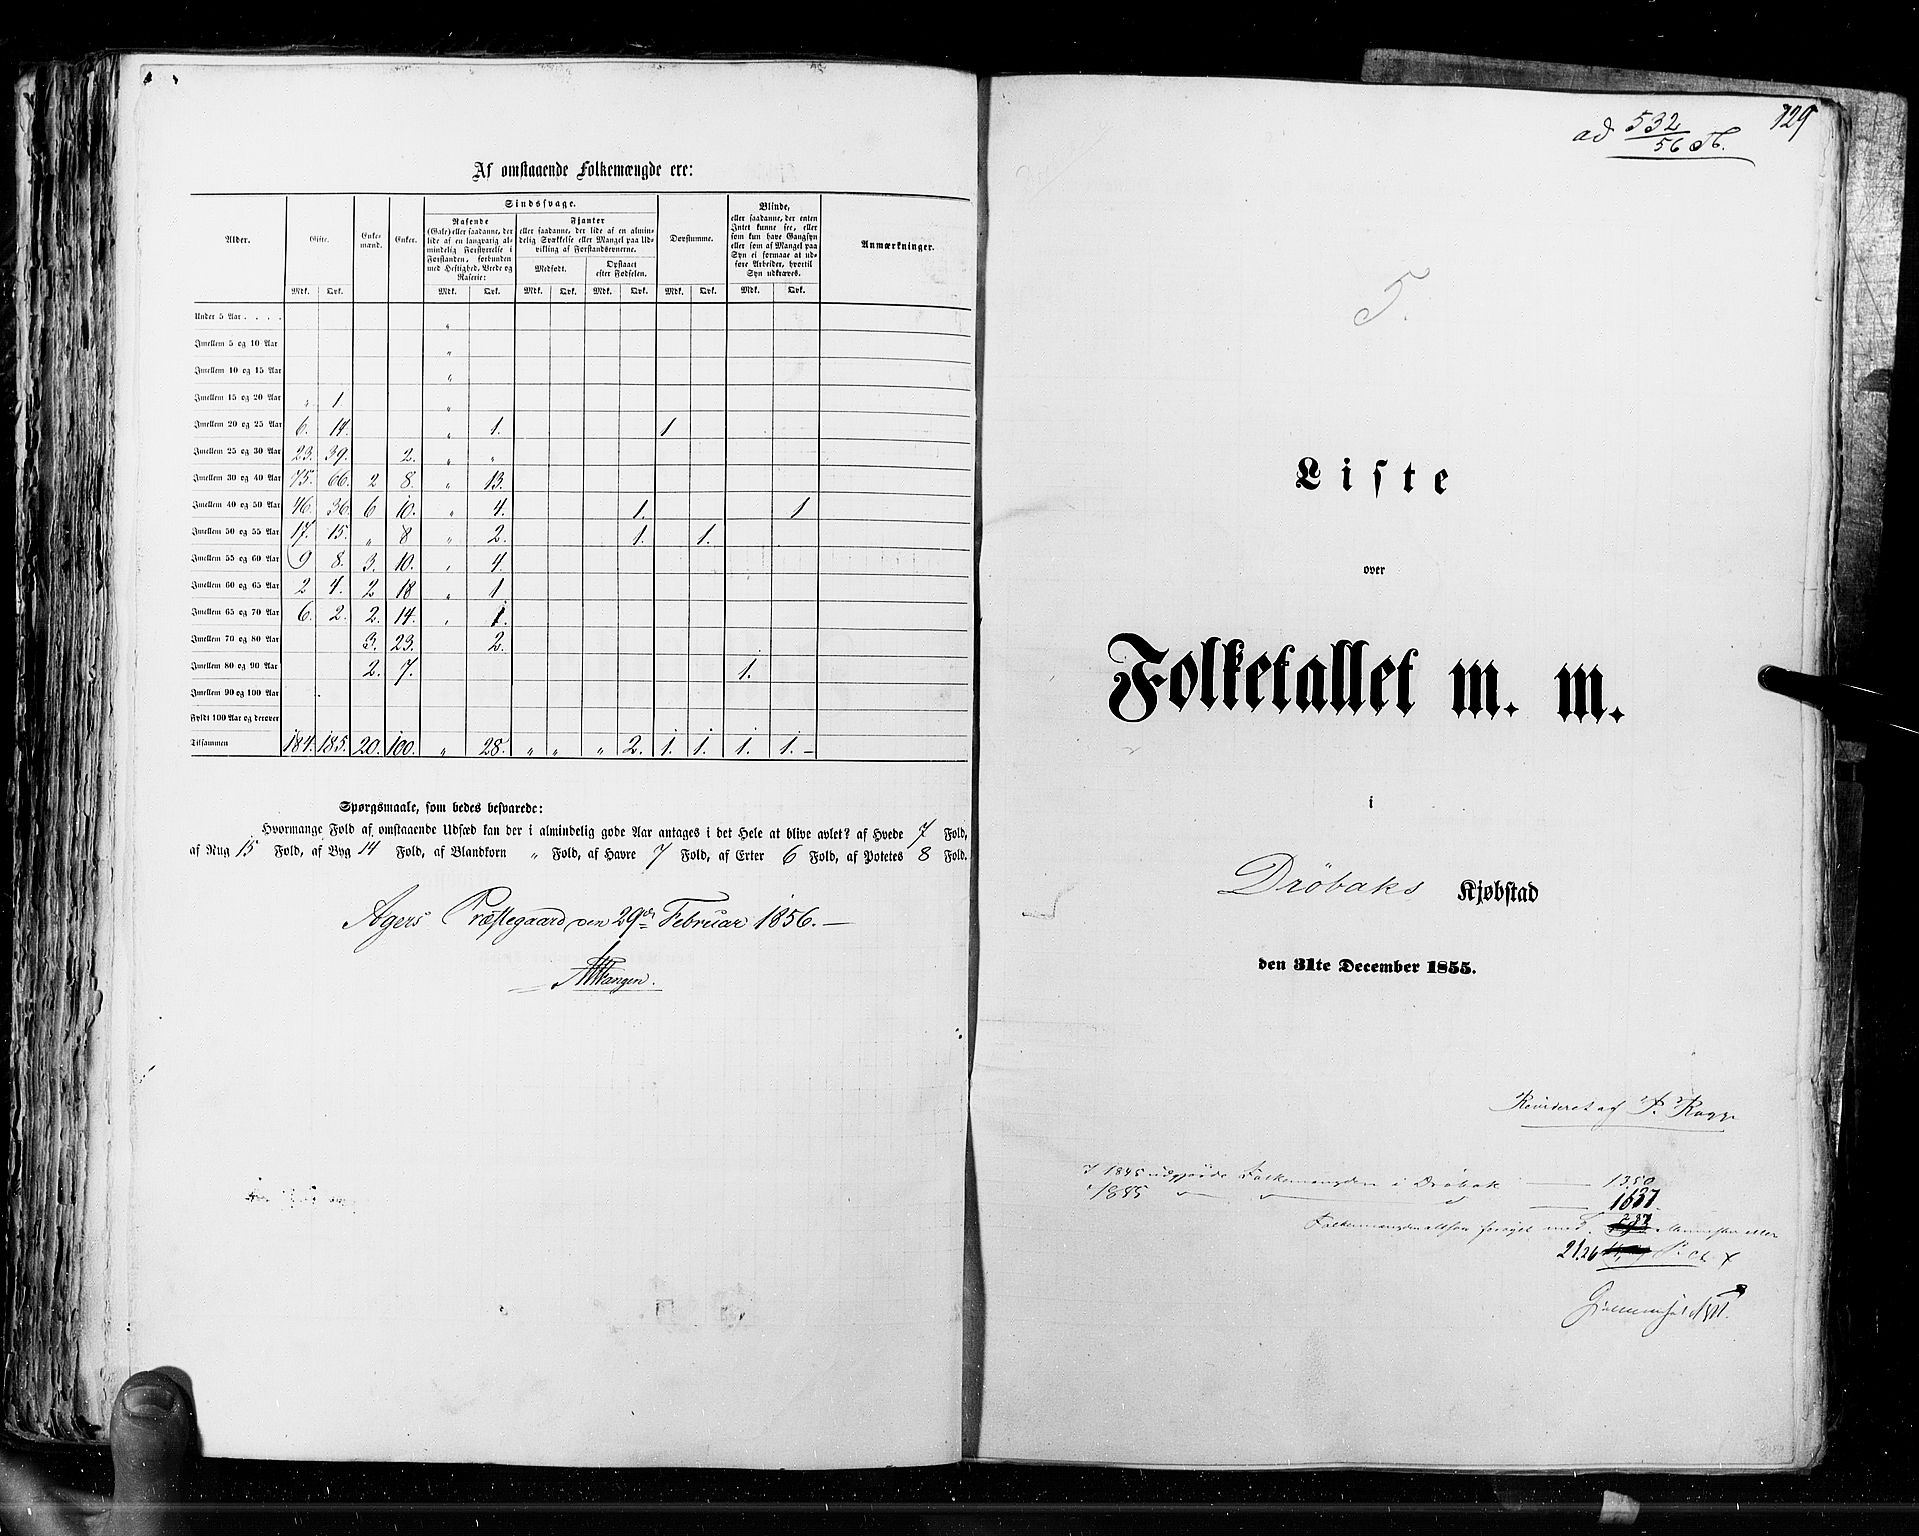 Af omstaaende Folkemængde ere:
Alder. Gifte. Enke-mænd. Enker. Sindssvage. Døvstumme. Blinde, eller saadanne, der enten Intet kunne see, eller som kun have Gangsyn eller som af Mangel paa Syn ei formaae at udføre Arbeider, hvortil Syn udkræves. Anmærkninger.
Rasende (Gale) eller saadanne, der lide af en langvarig almindelig Forstyrrelse i Forstanden, forbunden med Heftighed, Vrede og Raserie:
Fjanter eller saadanne, der lide af en almindelig Svækkelse eller Mangel paa Udvikling af Forstandsevnerne.
Medfødt. Opstaaet efter Fødselen.
Mdk. Qvk. Mdk. Qvk. Mdk. Qvk. Mdk. Qvk. Mdk. Qvk. Mdk. Qvk.
Under 5 Aar . . . . "
Imellem 5 og 10 Aar "
Imellem 10 og 15 Aar "
Imellem 15 og 20 Aar " 1 "
Imellem 20 og 25 Aar 6. 14. " 1. 1
Imellem 25 og 30 Aar 23. 39. 2. " "
Imellem 30 og 40 Aar 75. 66. 2 8. " 13.
Imellem 40 og 50 Aar 46. 36. 6 10. " 4. 1. 1
Imellem 50 og 55 Aar 17. 15. " 8 " 2. 1. 1.
Imellem 55 og 60 Aar 9 8. 3. 10. " 4.
Imellem 60 og 65 Aar 2 4. 2 18 " 1
Imellem 65 og 70 Aar 6. 2. 2. 14. " 1.
Imellem 70 og 80 Aar 3. 23. 2.
Imellem 80 og 90 Aar 2. 7. 1.
Imellem 90 og 100 Aar
Fyldt 100 Aar og derover
Tilsammen 184. 185. 20. 100. " 28. " " " 2. 1. 1. 1. 1. –
Spørgsmaale, som bedes besvarede:
Hvormange Fold af omstaaende Udsæd kan der i almindelig gode Aar antages i det Hele at blive avlet? af Hvede 7 Fold,
af Rug 15 Fold, af Byg 14 Fold, af Blandkorn " Fold, af Havre 7 Fold, af Erter 6 Fold, af Potetes 8 Fold.
Agers Præstegaard den 29de Februar 1856. –
Wangen.
129
ad 532/56
5.
Liste
over
Folketallet m. m.
i
Drøbaks Kjøbstad
den 31te December 1855.
Revideret af
I 1845 udgjorde Folkemængden i Drøbak — 1350
" 1855 " " " — 1637
Folkemængden altsaa forøget med 287 Mennesker eller
21.26